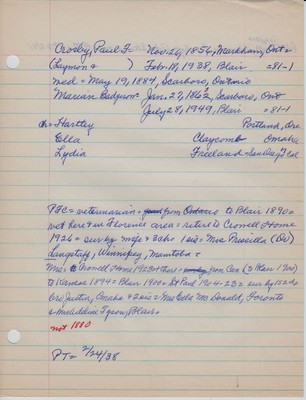 Crosby, Paul F= Nov. 26, 1856, Markham, Ont=
(Laymon & ) Feb. 18, 1938, Blair =81-1
md = May 19, 1884, Scarboro, Ontario
Marian = Jan. 27, 1862, Scarboro, Ont
July 28, 1949, Blair =81-1
ch= Hartley Portland, Ore
Ella Claycomb Omaha
Lydia Freeland=
PFC= veterinarian = from Ontario to Blair 1890=
vet here & in Florence area = retired to Crowell Home
1926 = sur by wife & 3 ch= 1 sis= Mrs Priscilla (Dr)
Langstaff, Winnipeg, Manitoba=
Mrs= to Crowell Home 1923 = from Can (to Blair 1 yr)
to Kansas 1894= Blair 1900= St Paul 1904-23= sur by
bro Justin, Omaha & 2 sis= Mrs Ella McDonald, Toronto
& Mrs Adeline Tyson, Blair=
not 1880
PT= 2/24/38